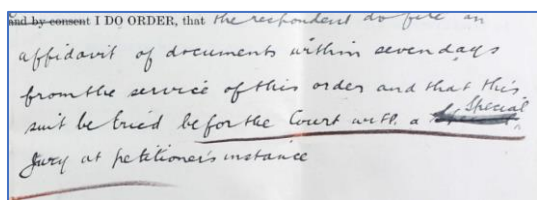 and by consent I DO ORDER, that the respondent do file an
affidavit of documents within seven days
from the service of this order and that this
suit be tried before the Court with a Special
Jury at petitioner's instance